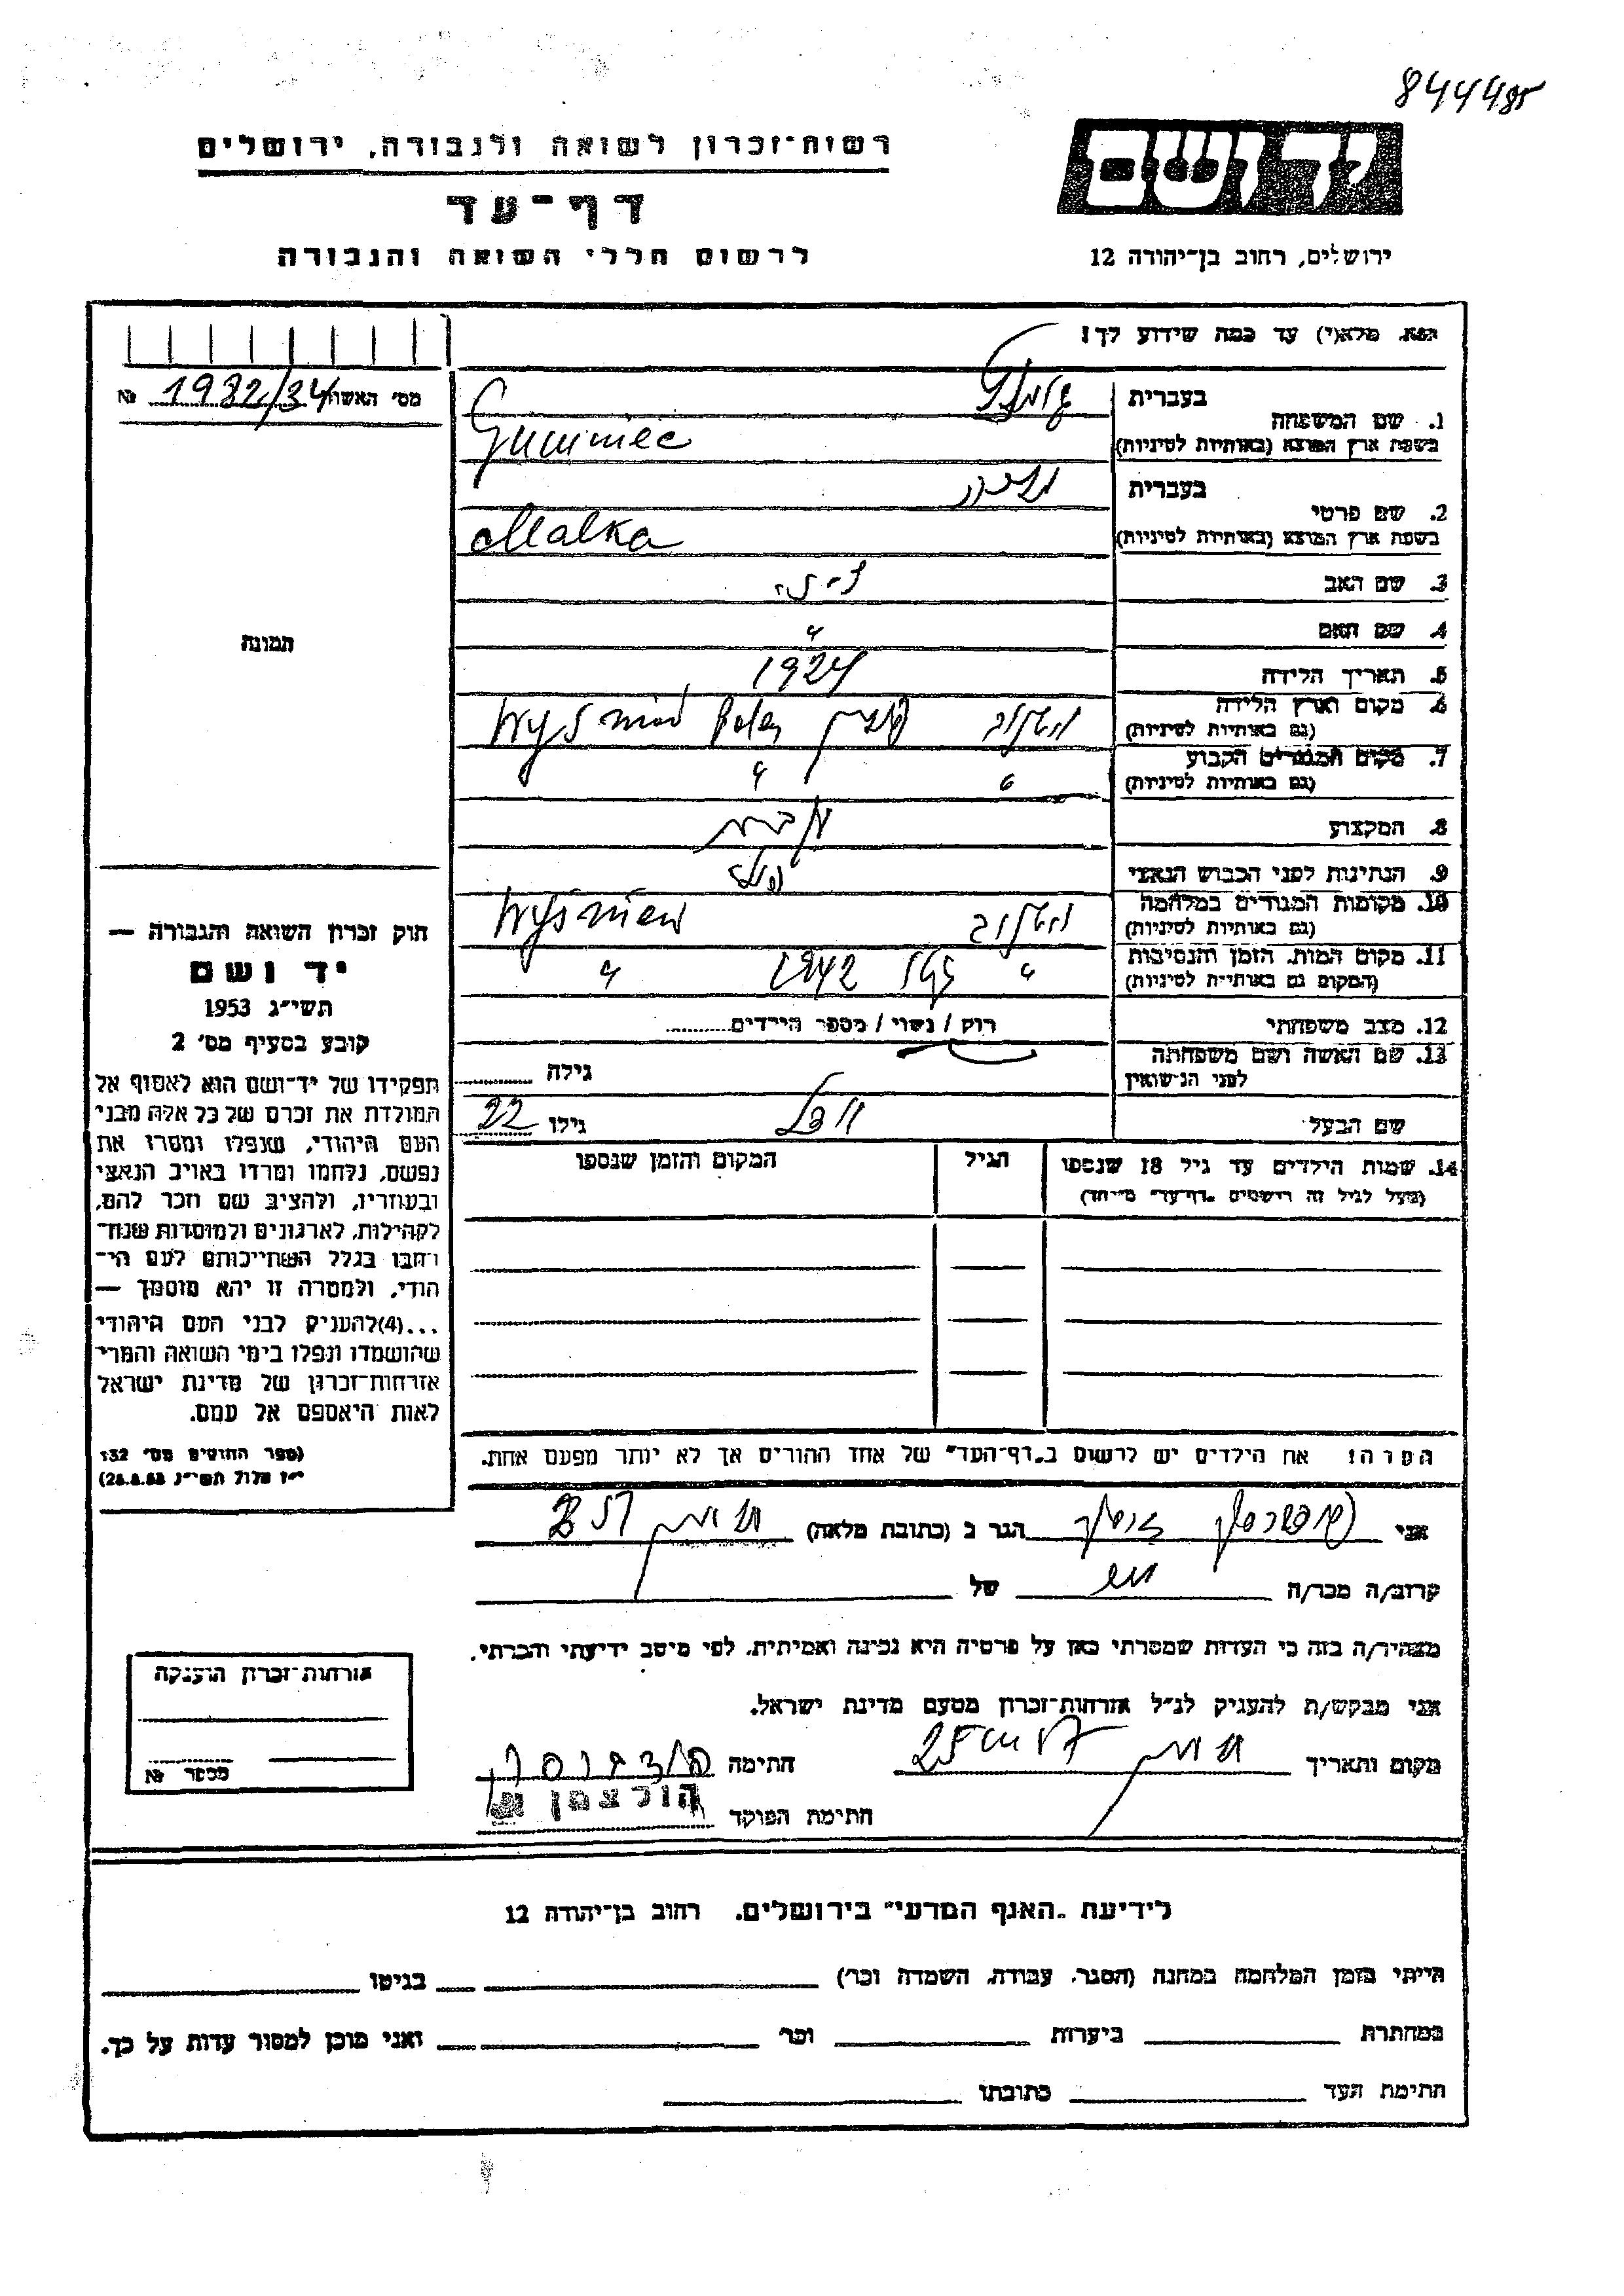 844485
רשות־זכרון לשואה ולגבורה, ירושלים
יד ושם
דף־עד
לרשום חללי השואה והגבורה
ירושלים, רחוב בן־יהודה 12
נא מלא(י) עד כמה שידוע לך!
מס' האשור 1982/34 №
בעברית
1. שם המשפחה
בשפת ארץ המוצא (באותיות לטיניות) Guminiec
בעברית מלכה
2. שם פרטי
בשפת ארץ המוצא (באותיות לטיניות) Malka
3. שם האב
4. שם האם "
תמונה
5. תאריך הלידה 1924
6. מקום וארץ הלידה
(גם באותיות לטיניות) פולין
7. מקום המגורים הקבוע
(גם באותיות לטיניות) " "
8. המקצוע
9. הנתינות לפני הכבוש הנאצי
10. מקומות המגורים במלחמה
(גם באותיות לטיניות) Wyśniew
11. מקום המות, הזמן והנסיבות
(המקום גם באותיות לטיניות) " 1942 "
12. מצב משפחתי רווק / נשוי / מספר הילדים
13. שם האשה ושם משפחתה
לפני הנישואין גילה
שם הבעל גילו 22
14. שמות הילדים עד גיל 18 שנספו הגיל המקום והזמן שנספו
(מעל לגיל זה רושמים "דף־עד" מיוחד)
חוק זכרון השואה והגבורה —
יד ושם
תשי״ג 1953
קובע בסעיף מס' 2
תפקידו של יד־ושם הוא לאסוף אל
המולדת את זכרם של כל אלה מבני
העם היהודי, שנפלו ומסרו את
נפשם, נלחמו ומרדו באויב הנאצי
ובעוזריו, ולהציב שם וזכר להם,
לקהילות, לארגונים ולמוסדות שנח־
רבו בגלל השתייכותם לעם הי־
הודי, ולמטרה זו יהא מוסמך —
...(4)להעניק לבני העם היהודי
שהושמדו ונפלו בימי השואה והמרי
אזרחות־זכרון של מדינת ישראל
לאות היאספם אל עמם.
(ספר החוקים מס' 132
י״ז אלול תשי״ג 28.8.53)
הערה: את הילדים יש לרשום ב"דף־העד" של אחד ההורים אך לא יותר מפעם אחת.
אני הגר ב (כתובת מלאה)
קרוב/ה מכר/ה של
מצהיר/ה בזה כי העדות שמסרתי כאן על פרטיה היא נכונה ואמיתית, לפי מיטב ידיעתי והכרתי.
אני מבקש/ת להעניק לנ״ל אזרחות־זכרון מטעם מדינת ישראל.
מקום ותאריך חתימה
חתימת הפוקד הולצמן
אזרחות־זכרון הוענקה
מספר №
לידיעת "האגף המדעי" בירושלים, רחוב בן־יהודה 12
הייתי בזמן המלחמה במחנה (הסגר, עבודה, השמדה וכו') בגיטו
במחתרת ביערות וכו' ואני מוכן למסור עדות על כך.
חתימת העד כתובתו